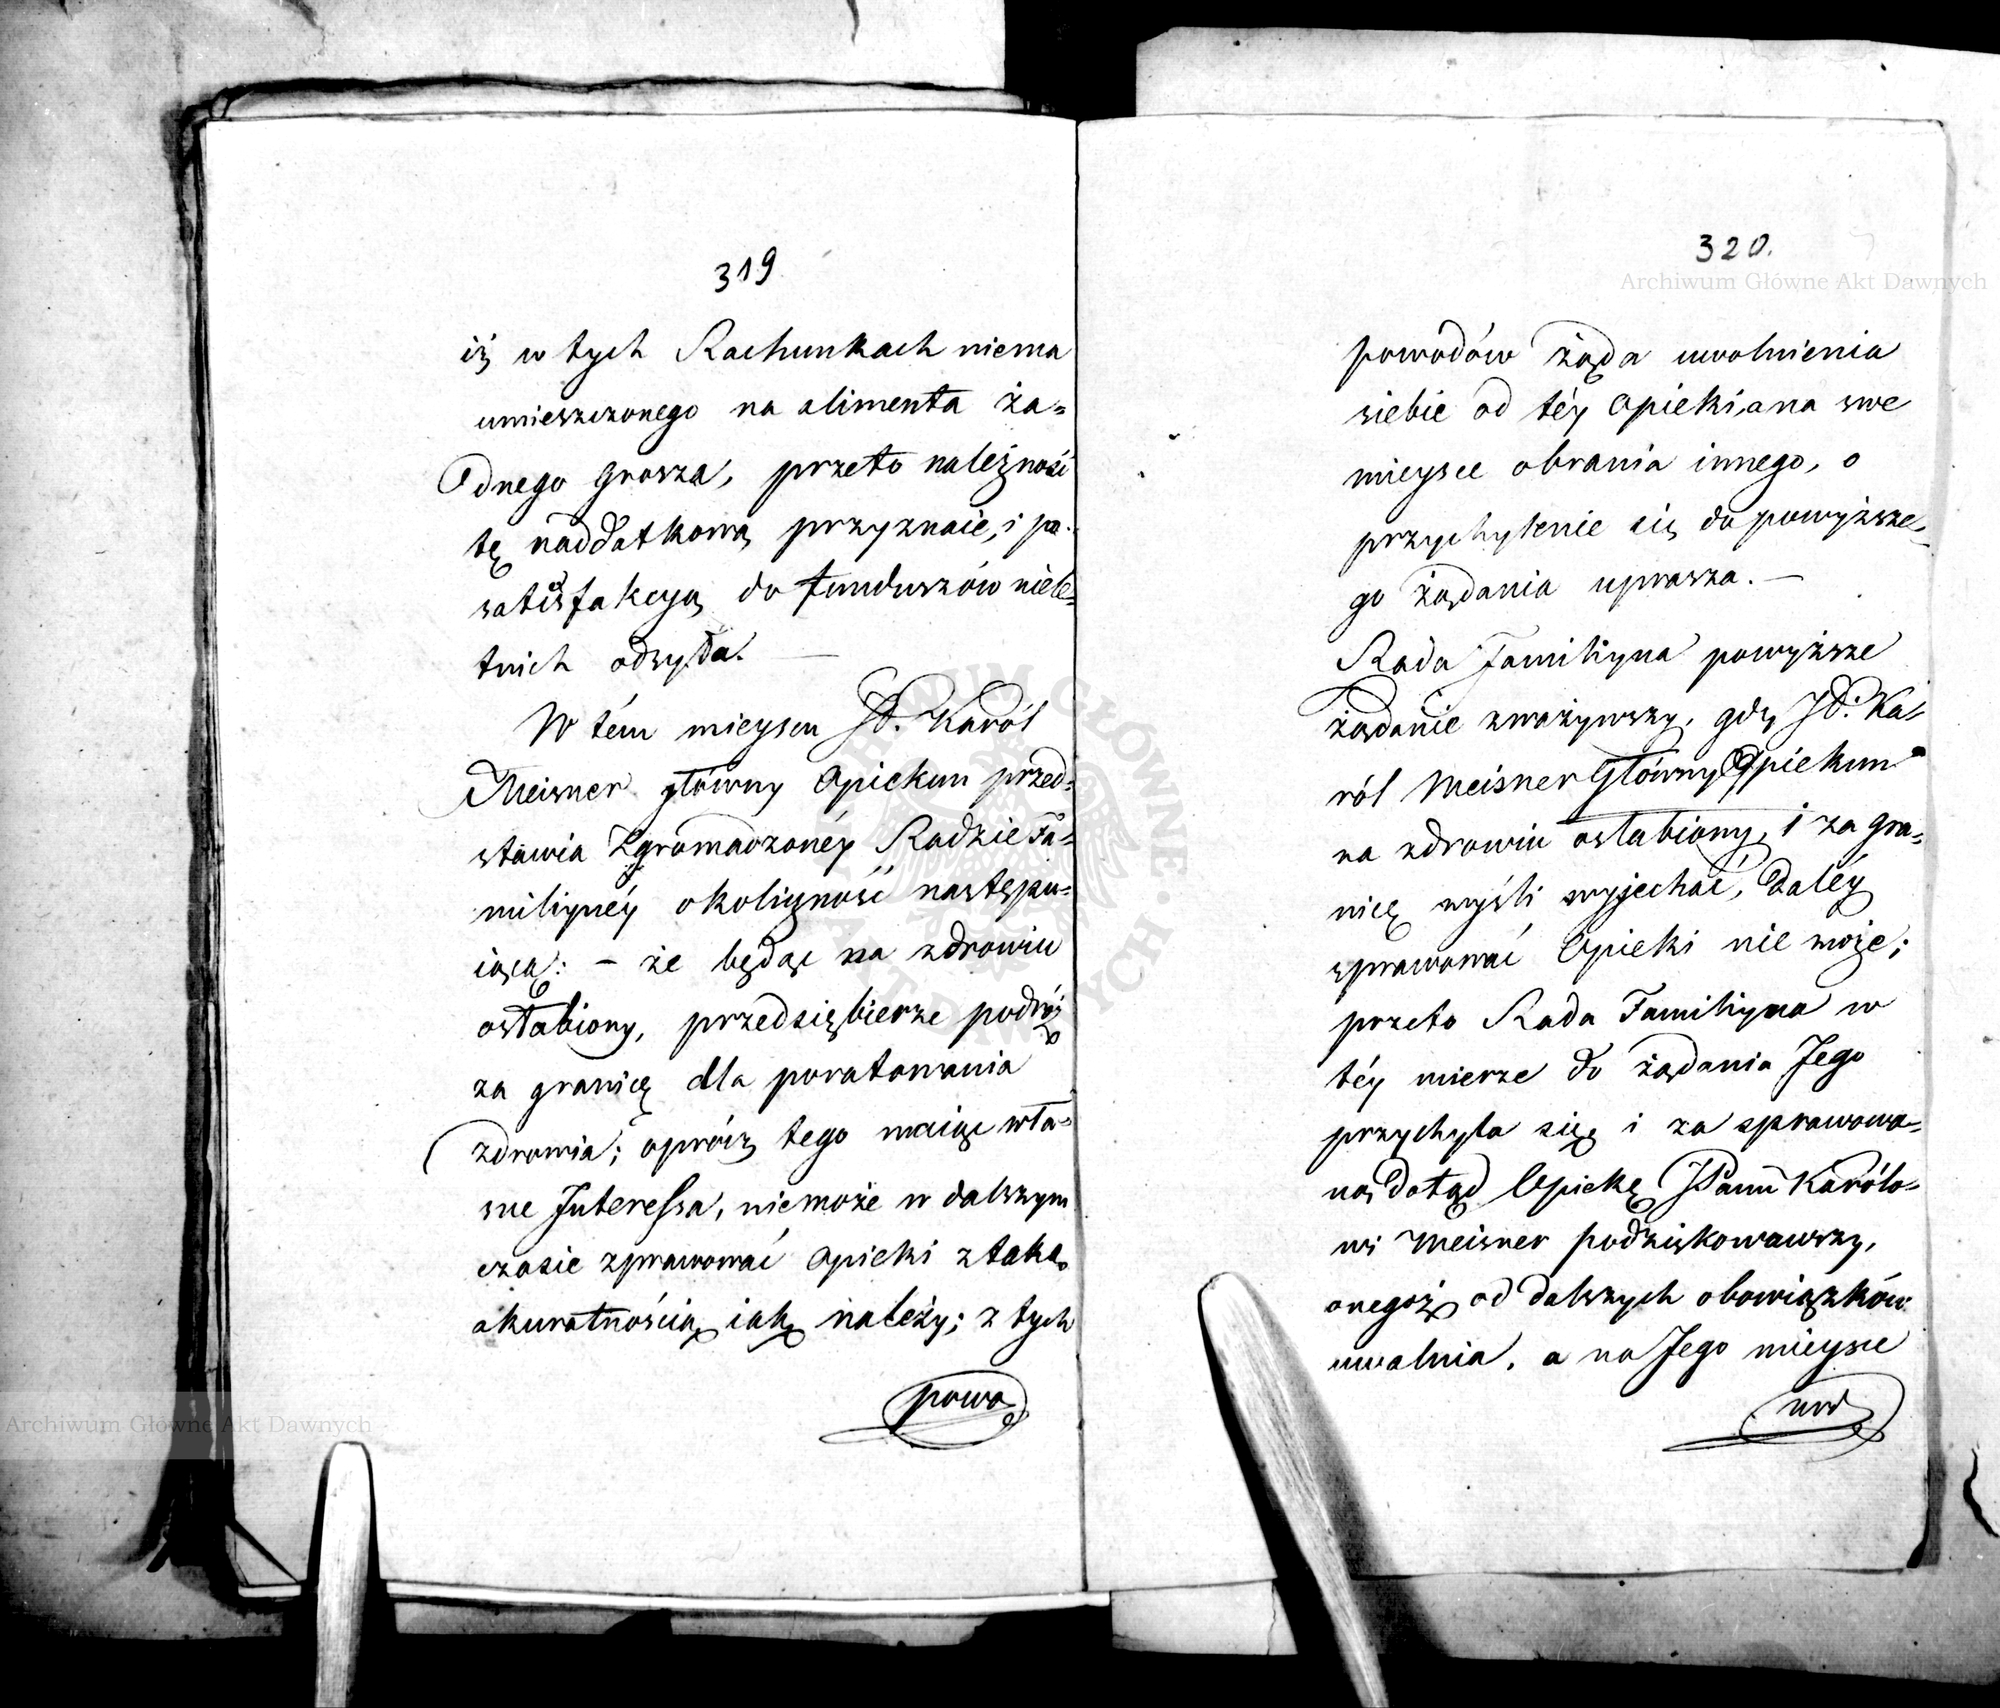 319
iż w tych Rachunkach niema
umieszczonego na alimenta ża=
dnego grosza, przeto należność
tę naddatkową przyznaie, i po
satisfakcyą do funduszów niele=
tnich odsyła. —
W tém mieyscu JP. Karól
Meisner główny Opiekun przed=
stawia Zgromadzonéy Radzie Fa=
miliynéy okoliczność następu=
iącą: – że będąc na zdrowiu
osłabiony, przedsiębierze podróż
za granicę dla poratowania
zdrowia; oprócz tego maiąc wła=
sne Interessa, niemoże w dalszym
czasie zprawować Opieki z taką
akuratnością iak należy; z tych
powo
320.
Archiwum Główne Akt Dawnych
powodów żąda uwolnienia
siebie od téy Opieki, a na swe
mieysce obrania innego, o
przychylenie się do powyższe=
go żądania uprasza. —
Rada Familiyna powyższe
żądanie zważywszy, gdy JP. Ka=
ról Meisner Główny Opiekun
na zdrowiu osłabiony, i za gra=
nicę myśli wyjechać, daléy
sprawować Opieki nie może;
przeto Rada Familiyna w
téy mierze do żądania Jego
przychyla się i za sprawowa=
ną dotąd Opiekę JPanu Karolo=
wi Meisner podziękowawszy,
onegoż od dalszych obowiązków
uwalnia, a na Jego mieysce
Archiwum Główne Akt Dawnych